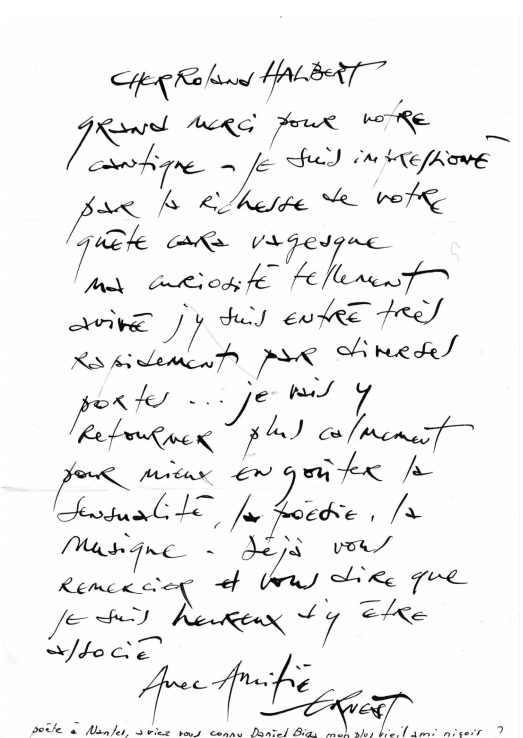 CHER Roland HALBERT
GRAND MERCi pour votre
cantique - JE suis impressioné
par la Richesse de votre
quête caravagesque
ma curiosité tellement
avivé j'y suis entré très
Rapidement par diverses
portes ... je vais y
Retourner plus calmement
pour mieux en goûter la
sensualité, la poésie, la
Musique - Déjà vous
REMERCIER et vous dire que
JE suis heureux d'y être
associé
Avec Amitié
ERNEST
poète à Nantes, aviez vous connu Daniel Biga, mon plus vieil ami niçois ?